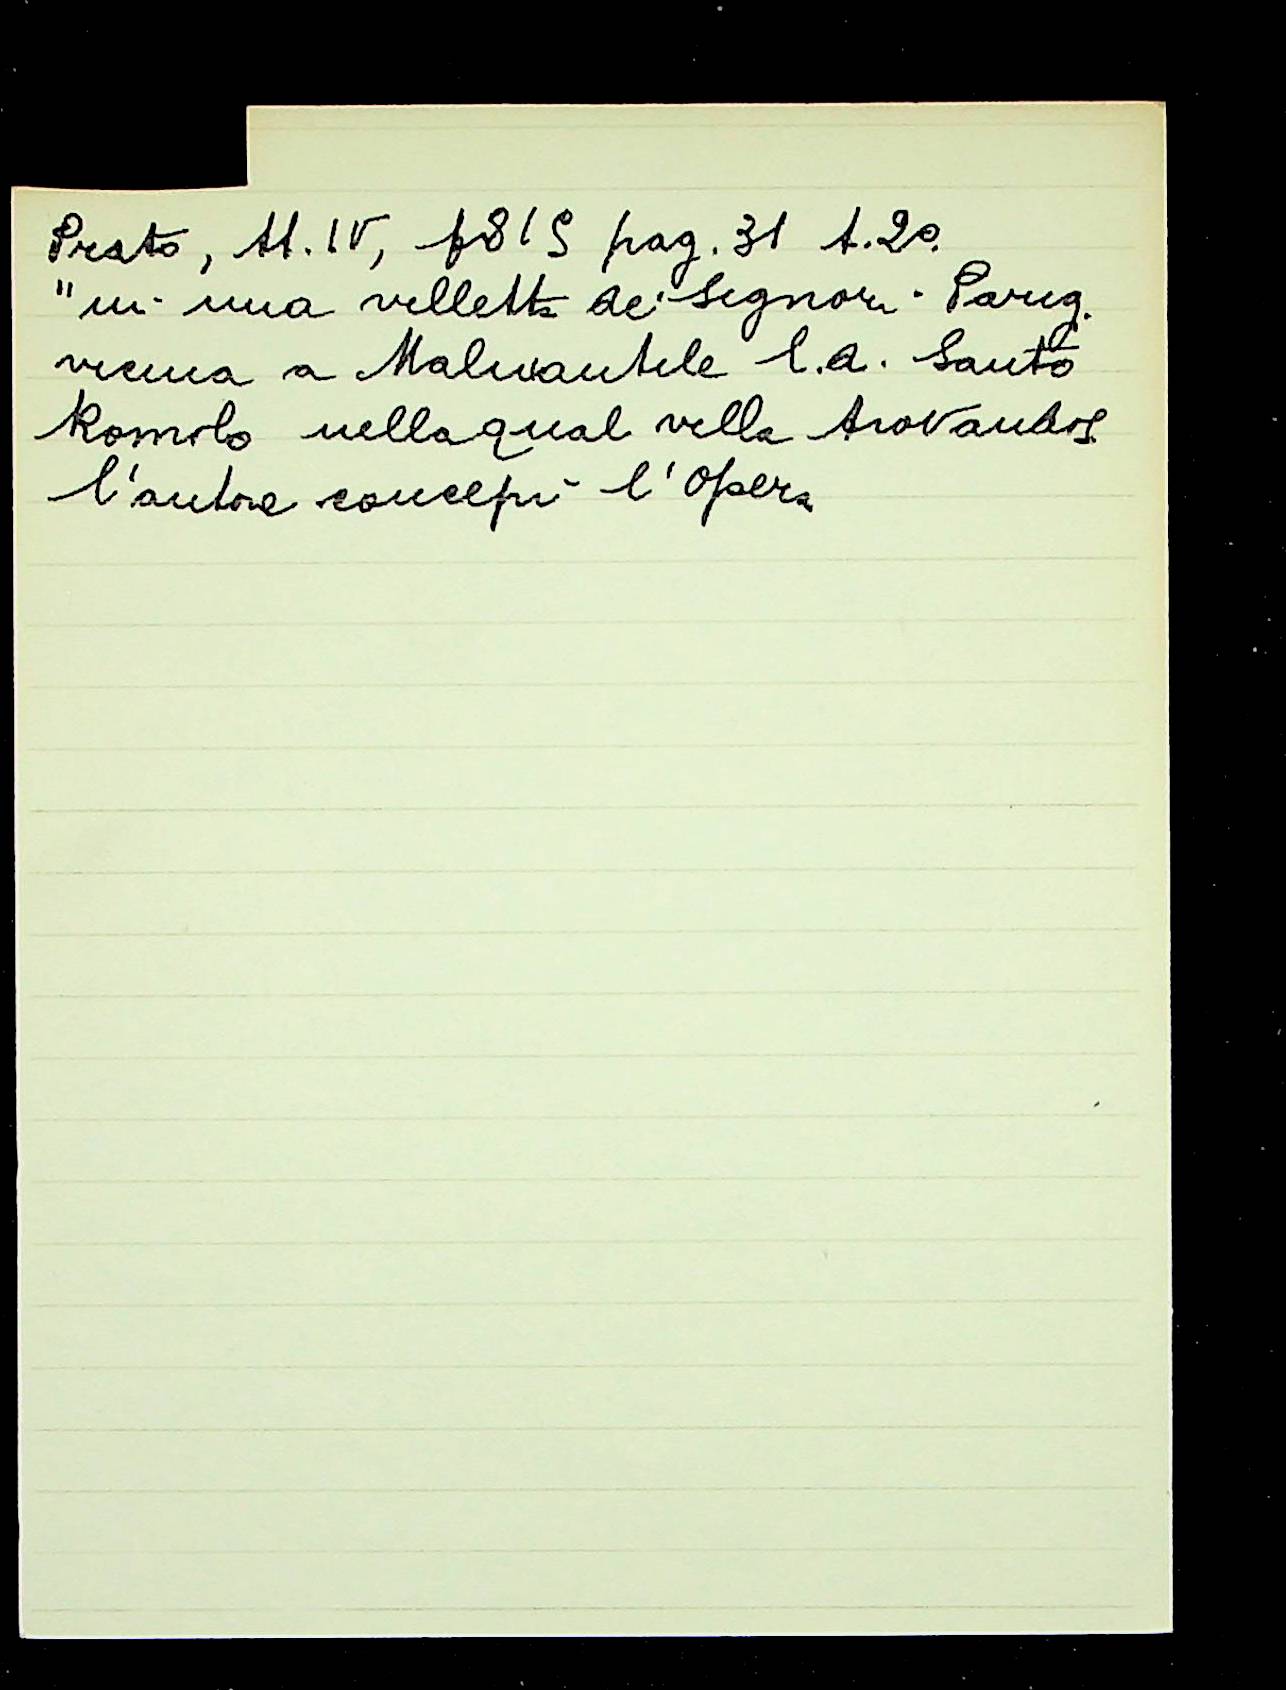 Prato, tt. IV, p819 pag. 31 t.2º.
"in una villetta de' Signori Parig.
vicina a Malmantile l.d. Santo
Romolo nella qual villa trovandosi
l'autore concepì l'Opera